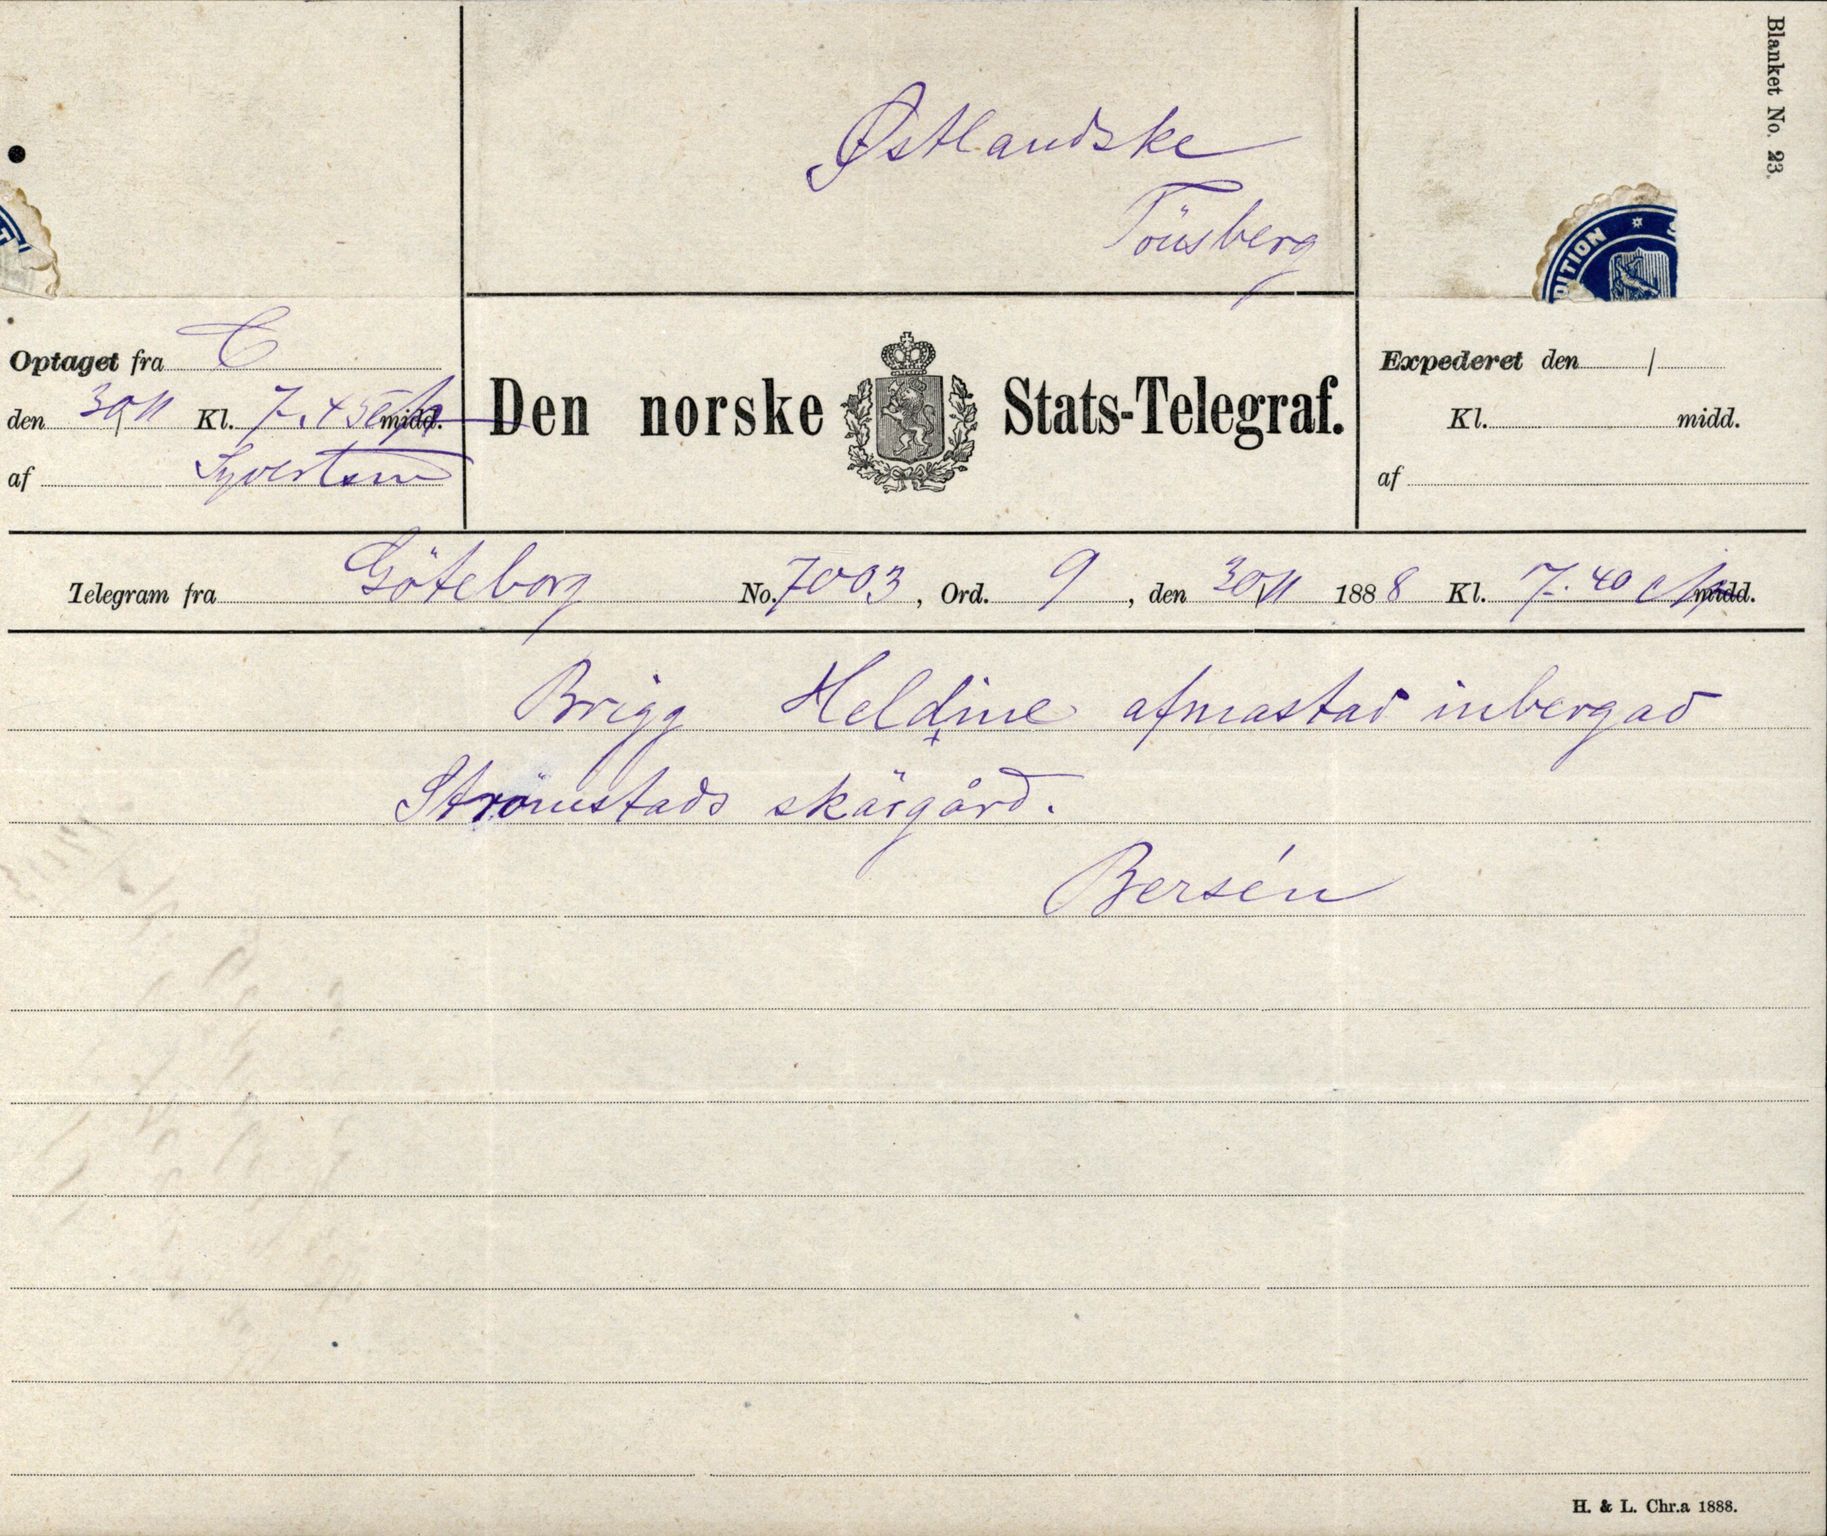 Blanket No. 23.
Østlandske
Tönsberg
DITION
Optaget fra C
den 30/11 Kl. 7.45 e/m midd.
af Syvertsen
Den norske Stats-Telegraf.
Expederet den /
Kl. midd.
af
Telegram fra Göteborg No. 7003, Ord. 9, den 30/11 1888 Kl. 7.40 e/m midd.
Brigg Heldine afmastad inbergad
Strömstads skärgård.
Bersén
H. & L. Chr.a 1888.